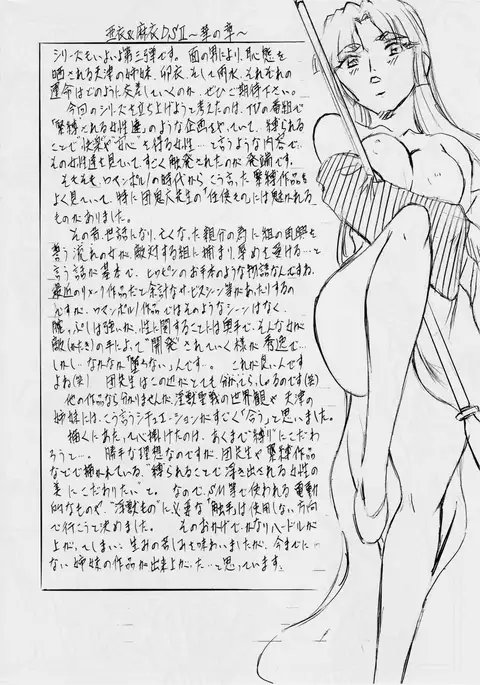 亜衣&麻衣DSⅡ～華の章～
シリーズもいよいよ第三弾です。面の男により、恥態を
晒される天津の姉妹、卯衣、そして雨水、それぞれの
運命はどのように交差していくのか、ぜひご期待下さい。
今回のシリーズを立ち上げようと考えたのは、TVの番組で
「緊縛される女性達」のような企画をやっていて、縛られる
ことで快楽や"安心"を得る女性…と言うような内容で、
その女性達を見ていてすごく触発されたのが発端です。
そもそも、ロマンポルノの時代からこう言った緊縛作品を
よく見ていて、特に団鬼六先生の「任侠もの」には魅かれる
ものがありました。
その昔、世話になり、亡くなった親分の為に組の再興を
誓う流れの女が、敵対する組に捕まり、辱めを受ける…と
言う話が基本で、ヒロピンのお手本のような物語なんですね。
最近のリメイク作品だと余計なサービスシーン等があったりするの
ですが、ロマンポルノ作品ではそのようなシーンはなく、
腕っぷしは強いが、性に関することには奥手で、そんな女が
敵(かたき)の手によって"開発"されていく様が秀逸で…
しかし…なかなか"堕ちない"んです…。これが良いんです
よね(笑) 団先生はこの辺がとても分かってらっしゃるのです(笑)
他の作品なら分かりませんが、淫獣聖戦の世界観や天津の
姉妹には、こう言うシチュエーションがすごく「合う」と思いました。
描くにあたって心掛けたのは、あくまで"縛り"にこだわ
ろうと…。勝手な理想なのですが、団先生や緊縛作品
などで描かれている、"縛られることで浮き出される女性の
美にこだわりたい"と。なので、SM等で使われる電動
的なものや、"淫獣もの"に必要な"触手"は使用しない方向
で行こうと決めました。そのおかげで、かなりハードルが
上がってしまい、生みの苦しみを味わいましたが、今までに
ない姉妹の作品が出来上がった…と思っています。